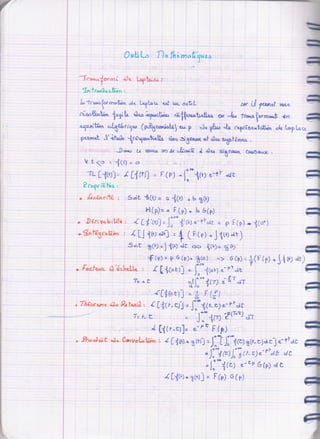 Outils Mathématiques
Transformée de Laplace :
Introduction :
La transformation de Laplace est un outil car il permet une
résolution facile des équations différentielles en les transformant en
équation algébrique (polynomiale) en p. De plus la représentation de Laplace
permet l'étude fréquentielle des signaux et des systèmes.
Dans ce cours on se limite à des signaux causaux :
∀ t < 0 : f(t) = 0
TL [f(t)] = L[f(t)] = F(p) = ∫ f(t) e^-pt dt
Propriétés :
• Linéarité : Soit h(t) = a f(t) + b g(t)
H(p) = a F(p) + b G(p)
• Dérivabilité : L[f'(t)] = ∫ f'(t) e^-pt dt = p F(p) - f(0+)
• Intégration : L[∫ f(t) dt] = 1/p (F(p) + ∫ f(t) dt)
Soit g(t) = ∫ f(t) dt <=> f(t) = g'(t)
F(p) = p G(p) - g(0) => G(p) = 1/p (F(p) + ∫ f(t) dt)
• Facteur d'échelle : L[f(at)] = ∫ f(at) e^-pt dt
L[f(at)] = 1/a F(p/a)
• Théorème du Retard : L[f(t-τ)] = ∫ f(t-τ) e^-pt dt
L[f(t-τ)] = e^-pτ F(p)
• Produit de Convolution : L[f(t) * g(t)] =
L[f(t) * g(t)] = F(p) G(p)